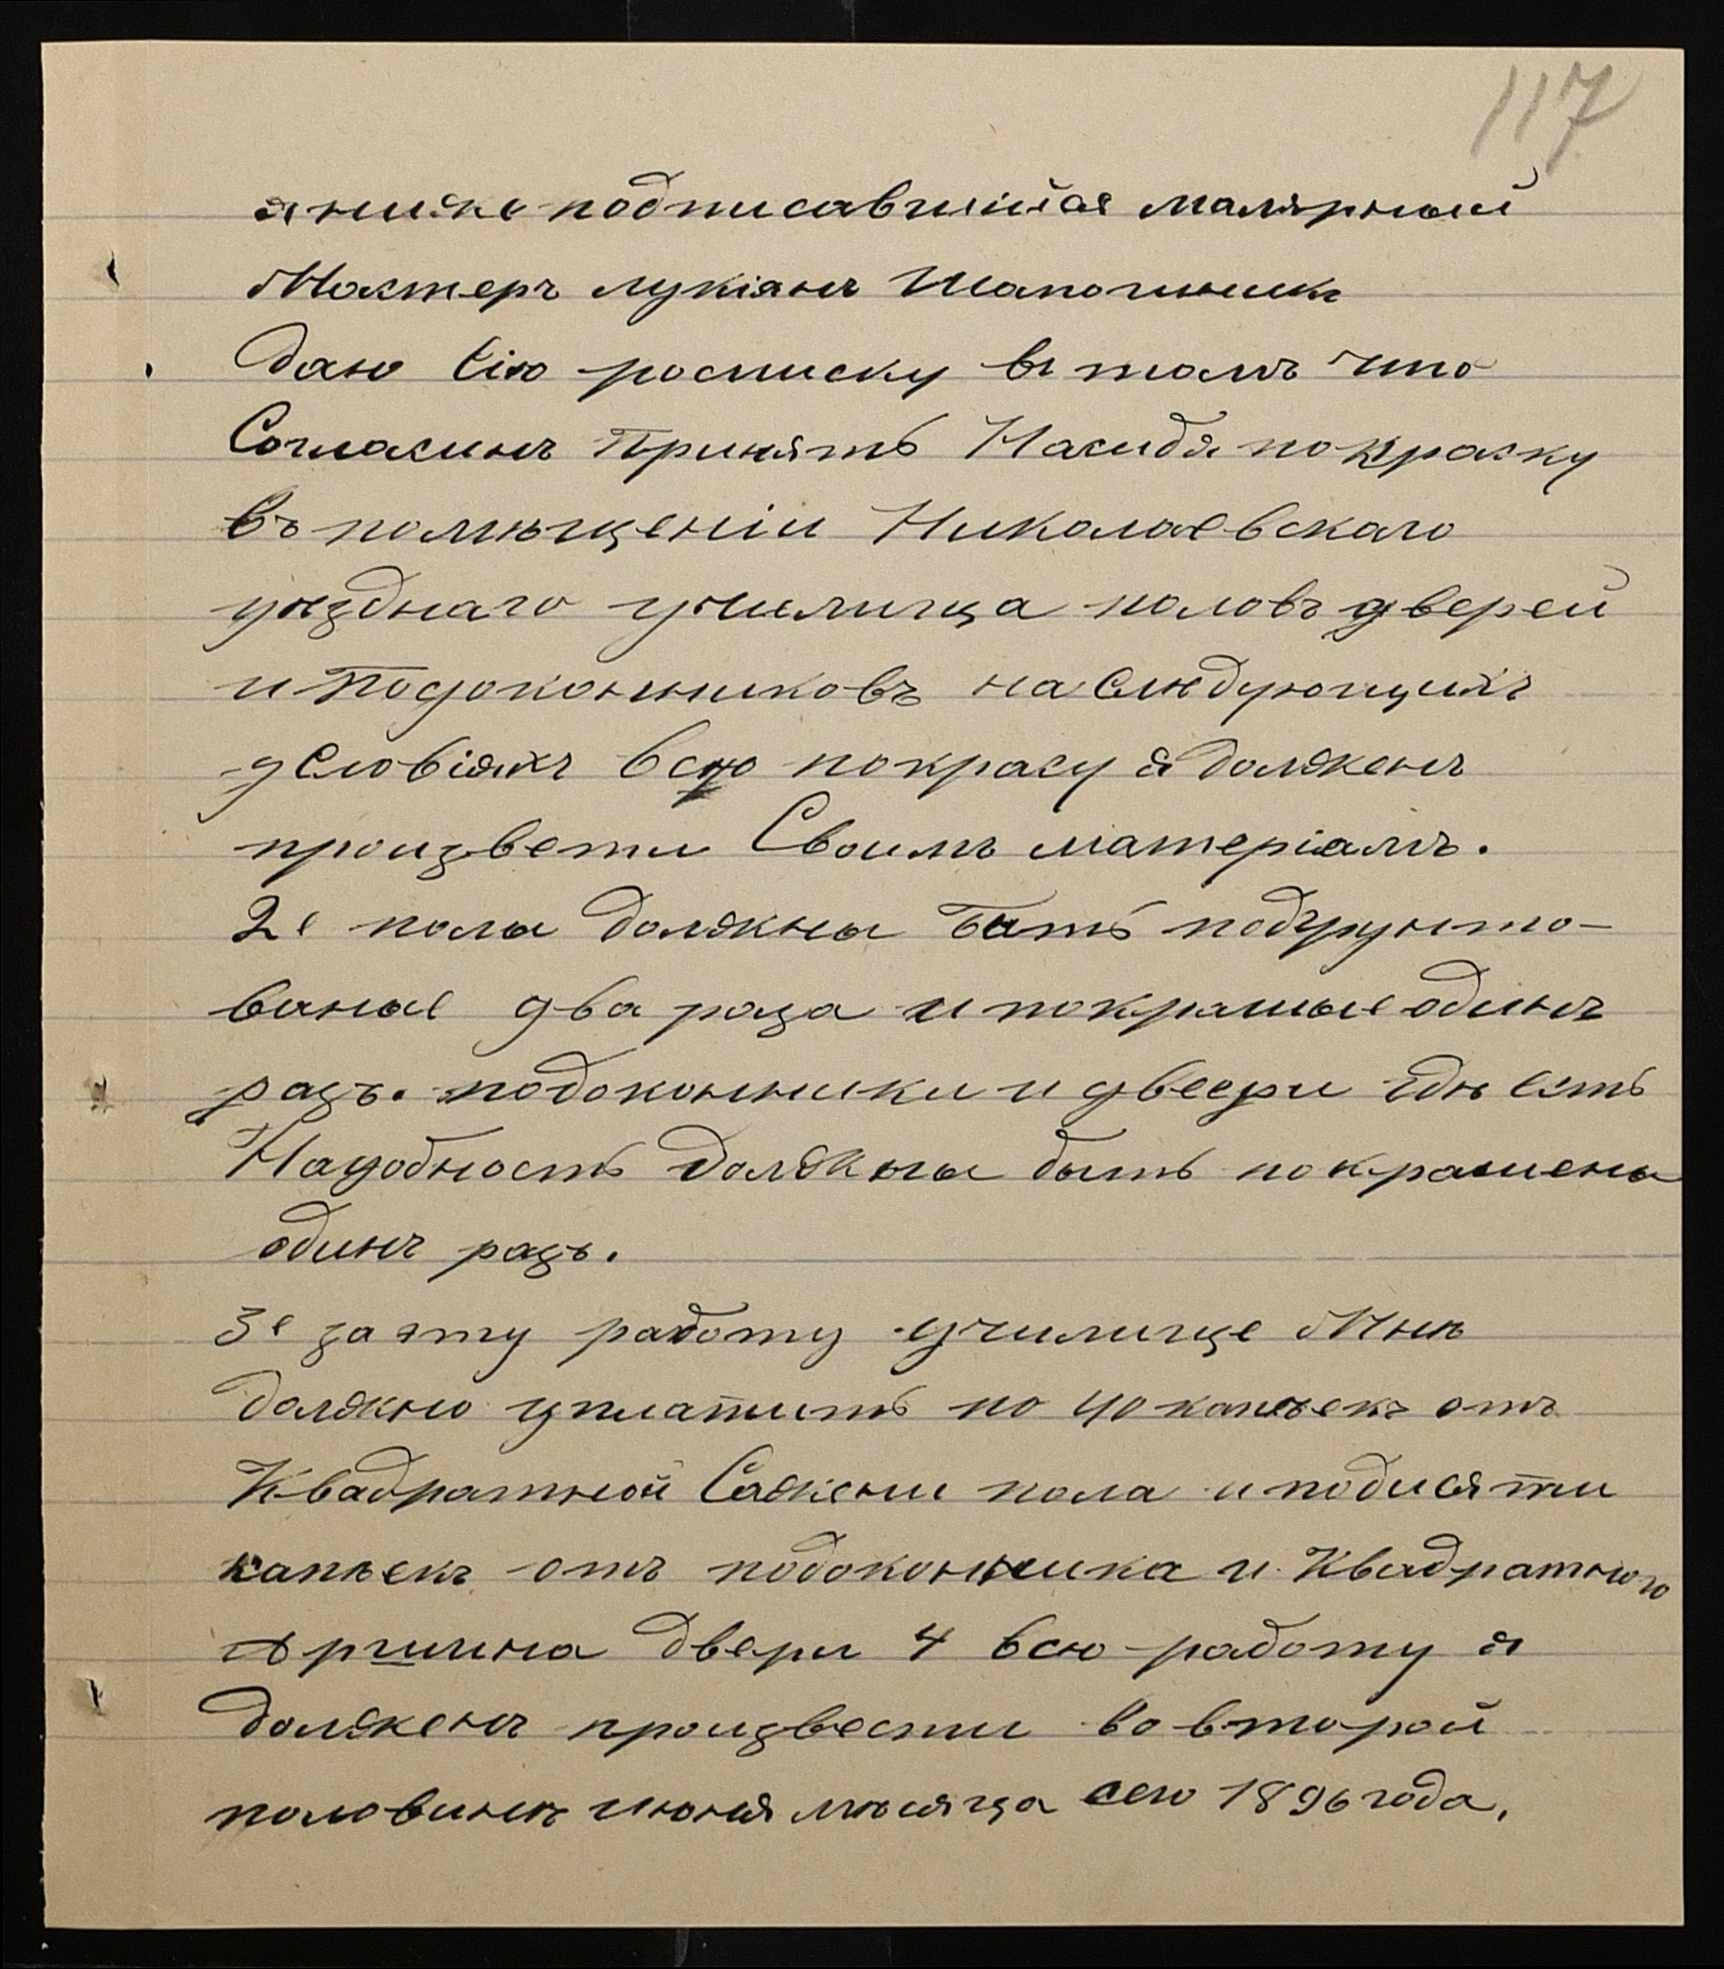 117
я ниже подписавшийся малярный
Мастеръ лукіянъ Шапочникъ
даю Сію росписку въ томъ что
Согласинъ Принять Насибя покраску
въ помѣщеніи Николаевскаго
уѣзднаго училища половъ дверей
и Подоконниковъ на Слѣдующихъ
уСловіяхъ всю покрасу я долженъ
произвети Своимъ матеріаломъ.
2е полы должны быть подгрунто-
ваные два раза и покрашые одинъ
разъ. подоконники и двеери гдѣ есть
Надобность должны быть покрашены
одинъ разъ.
3е за эту работу училище Мнѣ
должно уплатить по 40 капѣекъ отъ
Квадратной Сажени пола и подисяти
капѣекъ отъ подоконника и Квадратного
Аршина двери 4 всю работу я
долженъ произвести во второй
половинѣ июня мѣсяца сего 1896 года.